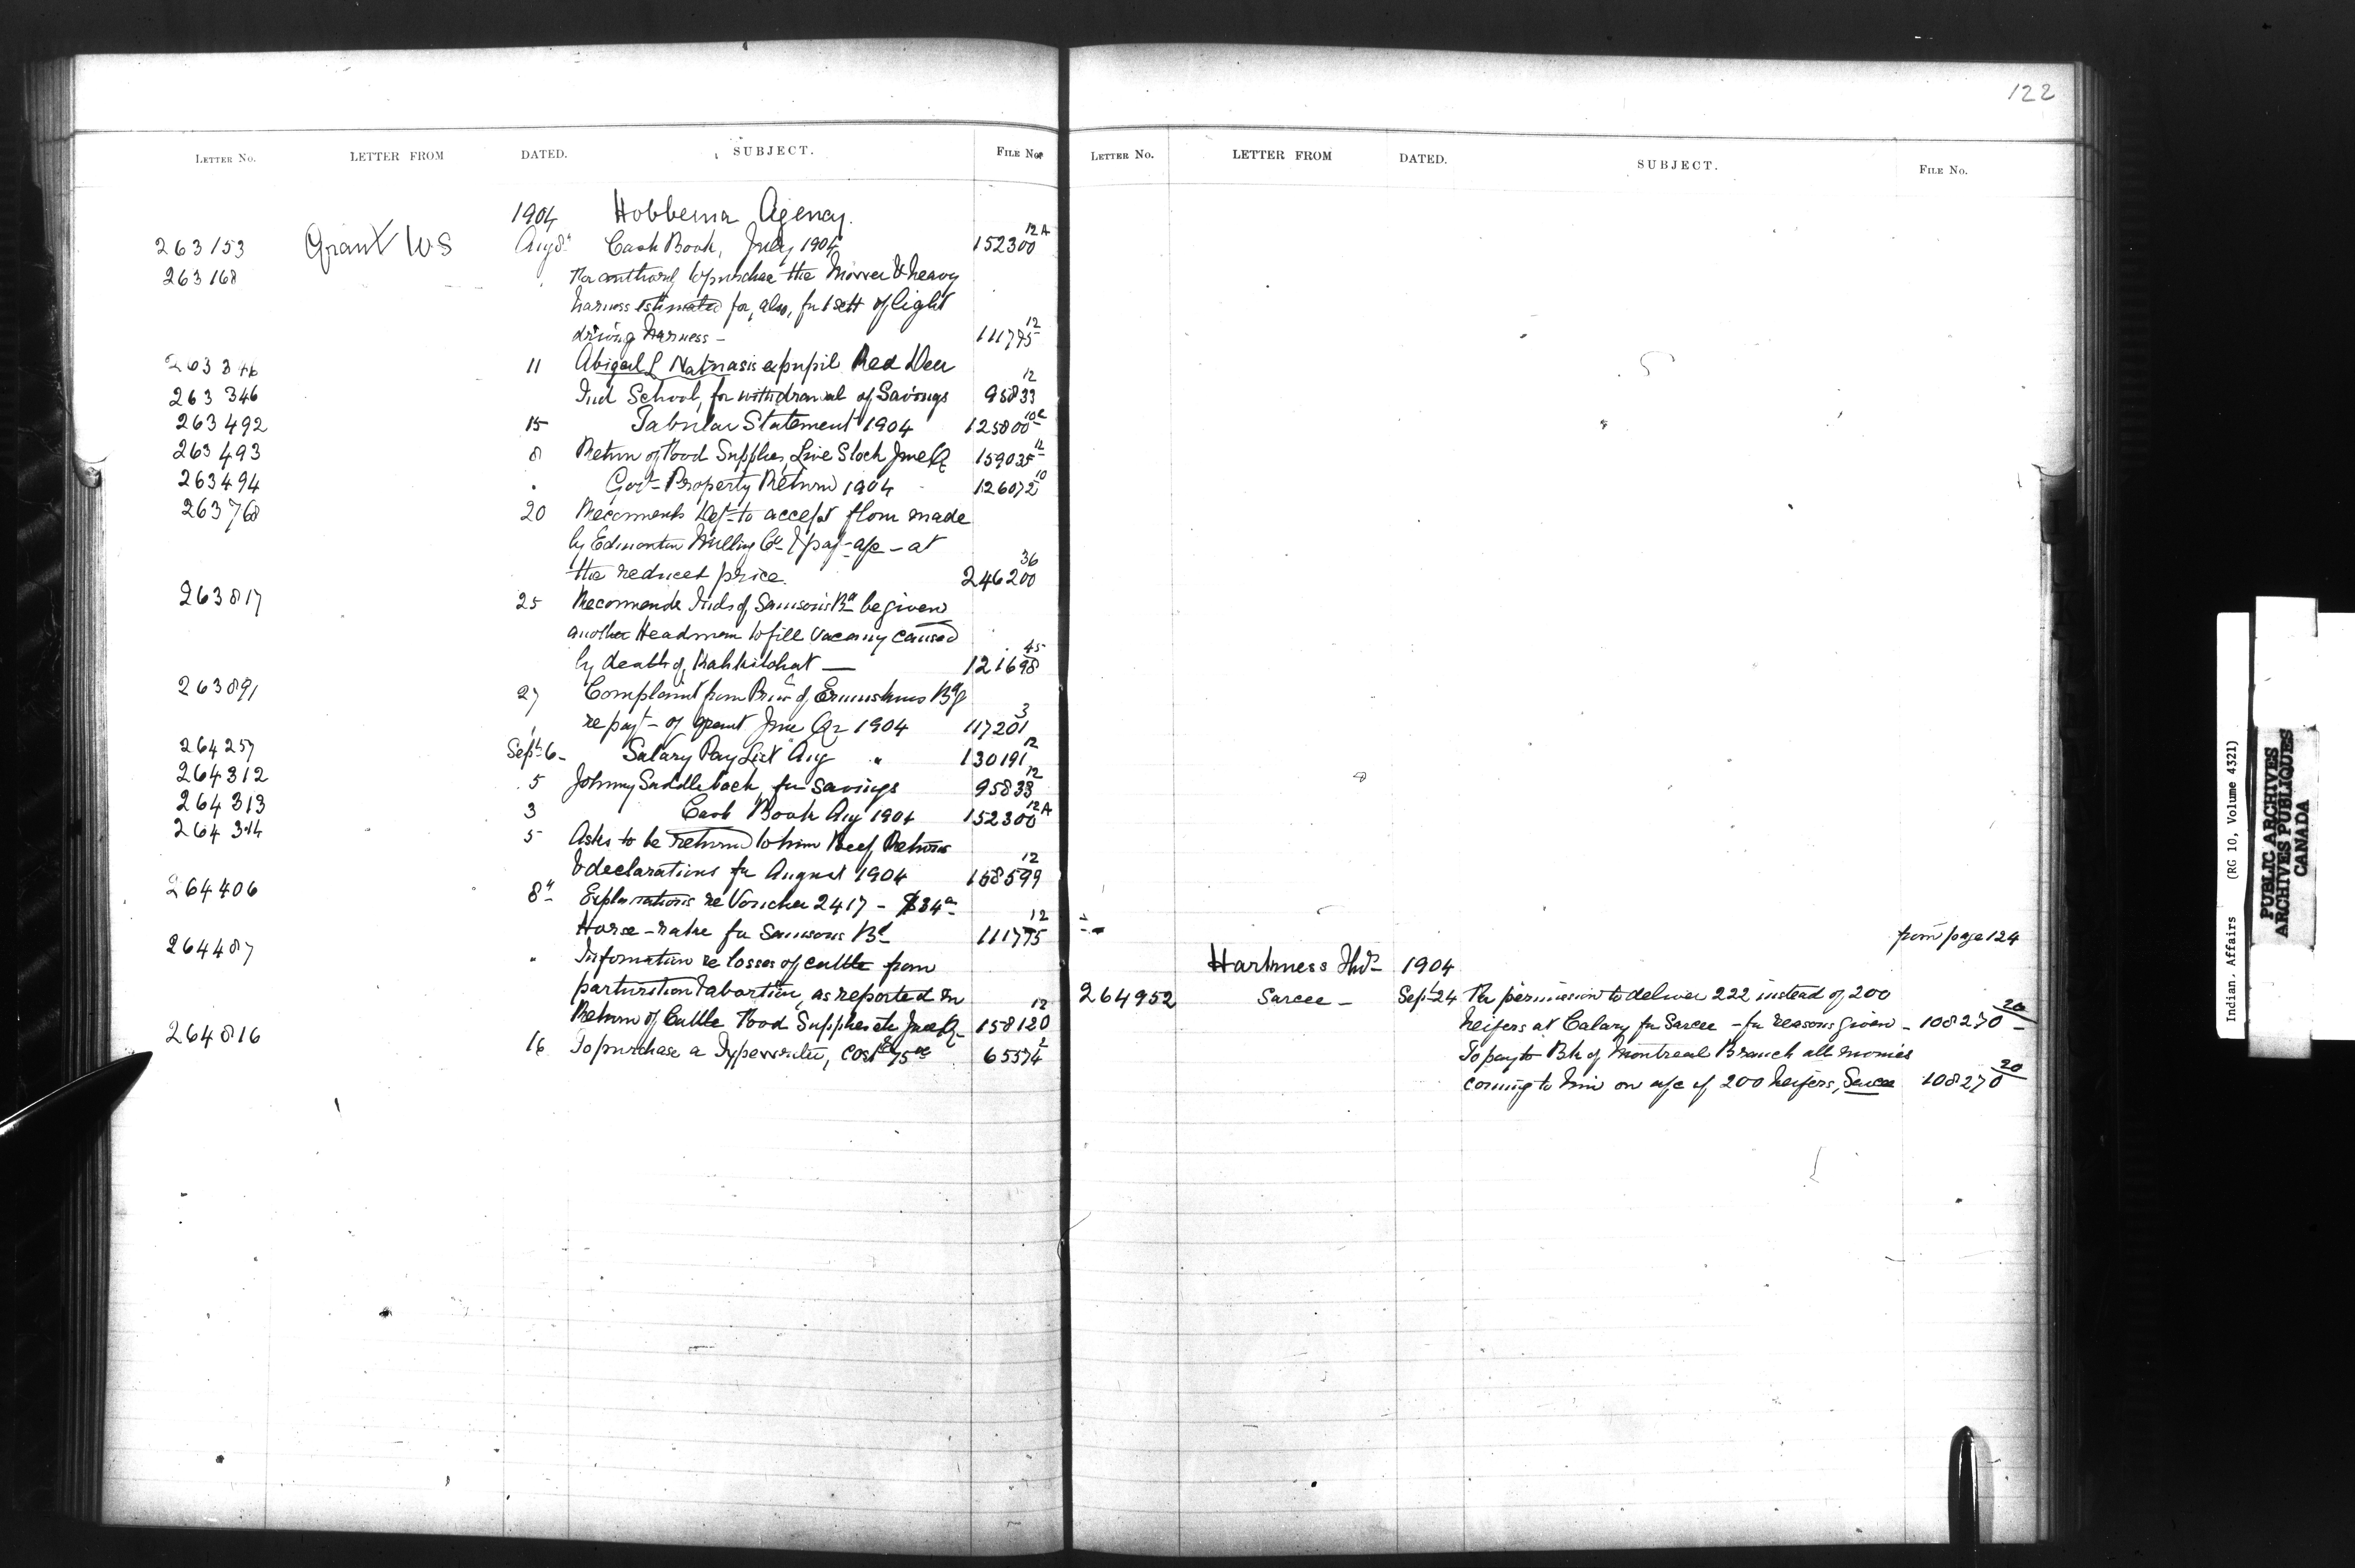 122
LETTER No. LETTER FROM DATED. SUBJECT. FILE No.
1904 Hobbema Agency.
263153 Grant W S Aug 8th Cash Book, July 1904 152300 12A
263168 " For authority to purchase the Mower & heavy
harness estimated for, also, for 1 sett of light
driving harness - 111775 12
263346 11 Abigail L Natnasis expupil Red Deer
263 346 Ind School, for withdrawal of Savings 95833 12
263492 15 Tabular Statement 1904 125800
263493 8 Return of Food Supplies, Live Stock June Qr 159035 12
263494 " Govt Property Return 1904 126072 10
263768 20 Recommends Dept to accept flour made
by Edmonton Milling Co & pay a/c - at
the reduced price. 246200 36
263817 25 Recommends Inds of Samson's Bd be given
another Headman to fill vacancy caused
by death of — 121698 45
263891 27 Complaint from of Ermineskins
re payt - of grant June Qr 1904 117201 3
264257 Sept 6 - Salary Pay List Aug " 130191 12
264312 5 Johnny Saddleback, for Savings 95833 12
264313 3 Cash Book Aug 1904 152300 12A
264314 5 Asks to be returned to him Beef Returns
& declarations for August 1904 158599 12
264406 8th Explanations re Voucher 2417 - $34
Horse-rake for Samsons Bd 111775 12
264487 " Information re losses of cattle from
parturition & abortion, as reported in
Return of Cattle Food Supplies etc June Qr 158120 12
264816 16 To purchase a Typewriter, cost $75 65574 2
LETTER No. LETTER FROM DATED. SUBJECT. FILE No.
from page 124
Harkness 1904
264952 Sarcee - Sept 24 For permission to deliver 222 instead of 200
heifers at Calary for Sarcee - for reasons given - 108270 20
To pay to Bk of Montreal Branch all monies
coming to him on a/c of 200 heifers, Sarcee 108270 20
Indian. Affairs (RG 10, Volume 4321)
PUBLIC ARCHIVES
ARCHIVES PUBLIQUES
CANADA